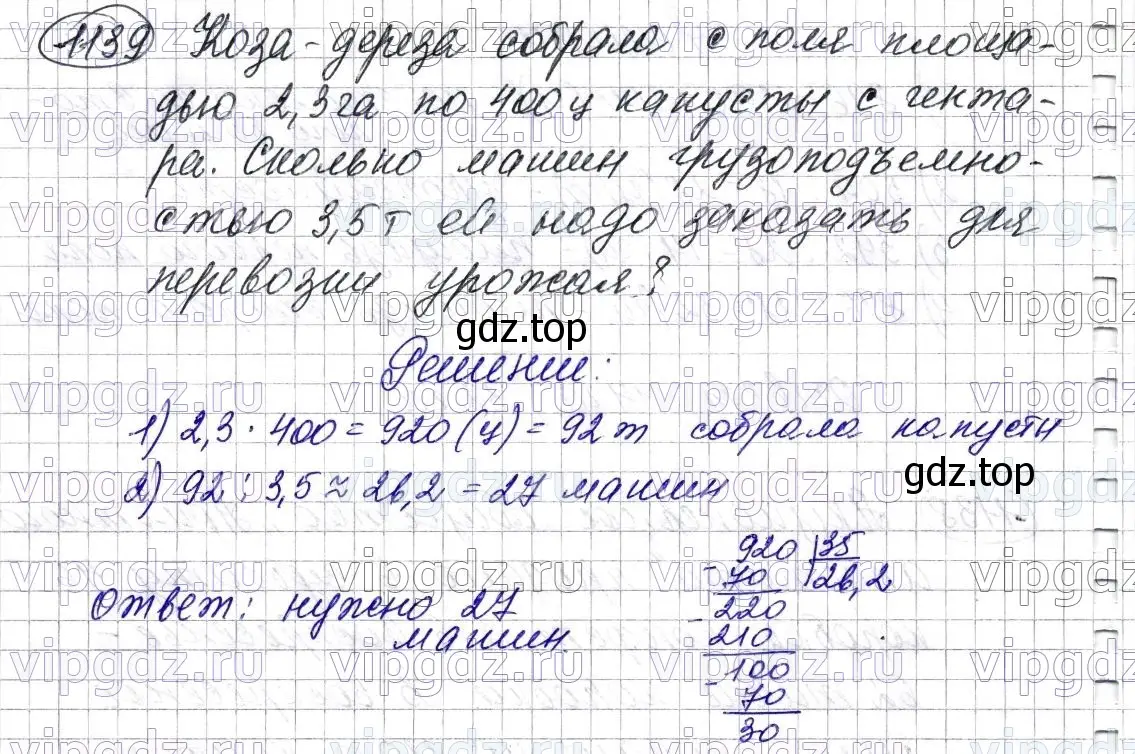 1139 Коза-дереза собрала с поля площа-
дью 2,3 га по 400 ц капусты с гекта-
ра. Сколько машин грузоподъемно-
стью 3,5 т ей надо заказать для
перевозки урожая?
gdz.top
Решение:
1) 2,3 · 400 = 920 (ц) = 92 т собрала капусты
2) 92 : 3,5 ≈ 26,2 = 27 машин
gdz.top
920 |35
- 70 |26,2
- 220
210
- 100
70
30
Ответ: нужно 27
машин.
vipgdz.ru